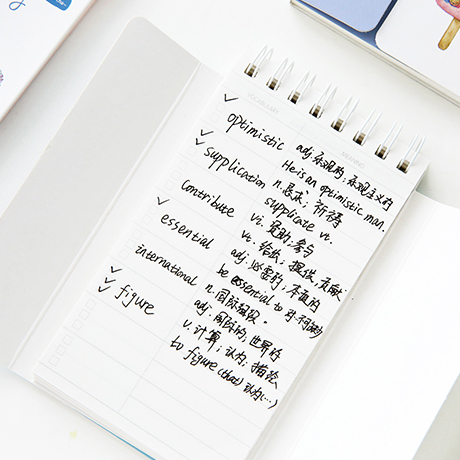 VOCABULARY
optimistic adj. 乐观的；乐观主义的
He is an optimistic man.
supplication n. 恳求；祈祷
supplicate vt.
contribute vi. 赞助；参与
vt. 给出；提供；贡献
essential adj. 必要的；本质的
be essential to 对…
international n. 国际组织。
adj. 国际的；世界的
figure v. 计算；认为；描绘
to figure (that) 认为(…)